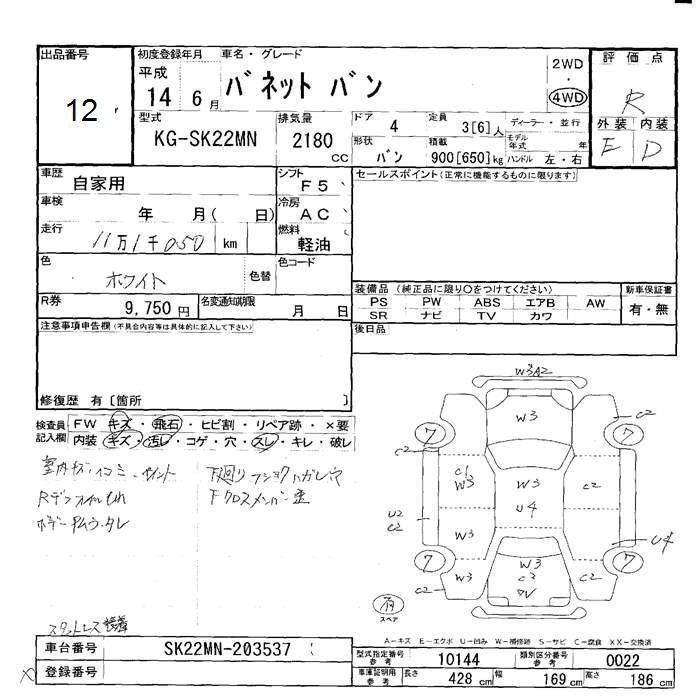 出品番号
12
初度登録年月
平成
14 6月
車名・グレード
バネット バン
2WD
・
4WD
評価点
R
型式
KG-SK22MN
排気量
2180 cc
ドア 4
定員 3[6]人
ディーラー・並行
形状 バン
積載 900[650]kg
モデル年式 年
ハンドル 左・右
外装 内装
E D
車歴 自家用
シフト F5
セールスポイント(正常に機能するものに限ります)
車検 年 月( 日)
冷房 AC
走行 11万1千050 km
燃料 軽油
色 ホワイト 色替
色コード
R券 9,750円
名変通知期限 月 日
装備品 (純正品に限り○をつけてください)
新車保証書
PS PW ABS エアB AW
SR ナビ TV カワ
有・無
注意事項申告欄(不具合内容等は具体的に記入して下さい)
後日品
修復歴 有[箇所 ]
検査員記入欄
FW キズ・飛石・ヒビ割・リペア跡・×要
内装 キズ・汚レ・コゲ・穴・スレ・キレ・破レ
Rデフオイルもれ
下廻り
Fクロスメンバー歪
W3A2
W3
C2
7
7
C2
C1
W3
W3
C2
U4
U2
C2
W3
U4
7
7
W3
W3
C2
C2
C2
有
スペア
A-キズ E-エクボ U-凹み W-補修跡 S-サビ C-腐食 XX-交換済
車台番号 SK22MN-203537
登録番号
型式指定番号 参考 10144
類別区分番号 参考 0022
車庫証明用 参考 長さ 428 cm 幅 169 cm 高さ 186 cm